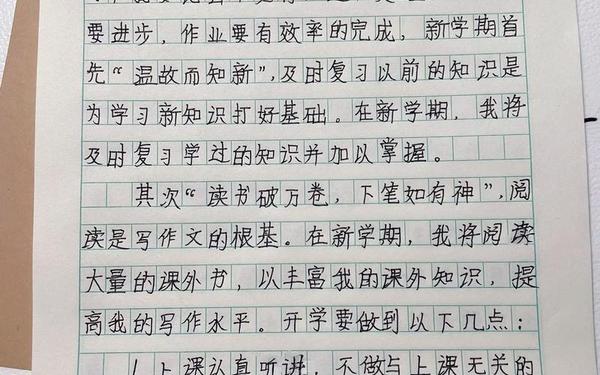 要进步,作业要有效率的完成,新学期首
先“温故而知新”,及时复习以前的知识是
为学习新知识打好基础。在新学期,我将
及时复习学过的知识并加以掌握。
其次“读书破万卷,下笔如有神”,阅
读是写作文的根基。在新学期,我将阅读
大量的课外书,以丰富我的课外知识,提
高我的写作水平。开学要做到以下几点:
1上课认真听讲,不做与上课无关的